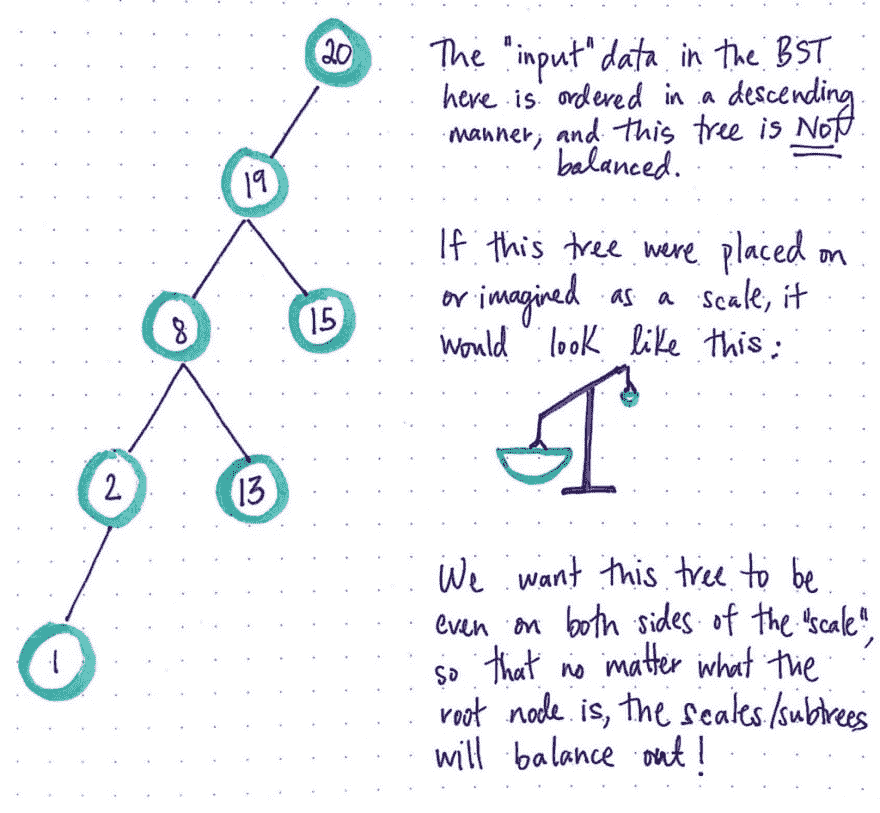 20
19
8
15
2
13
1
The "input" data in the BST
here is ordered in a descending
manner, and this tree is NOT
balanced.
If this tree were placed on
or imagined as a scale, it
would look like this:
We want this tree to be
even on both sides of the "scale",
so that no matter what the
root node is, the scales/subtrees
will balance out!